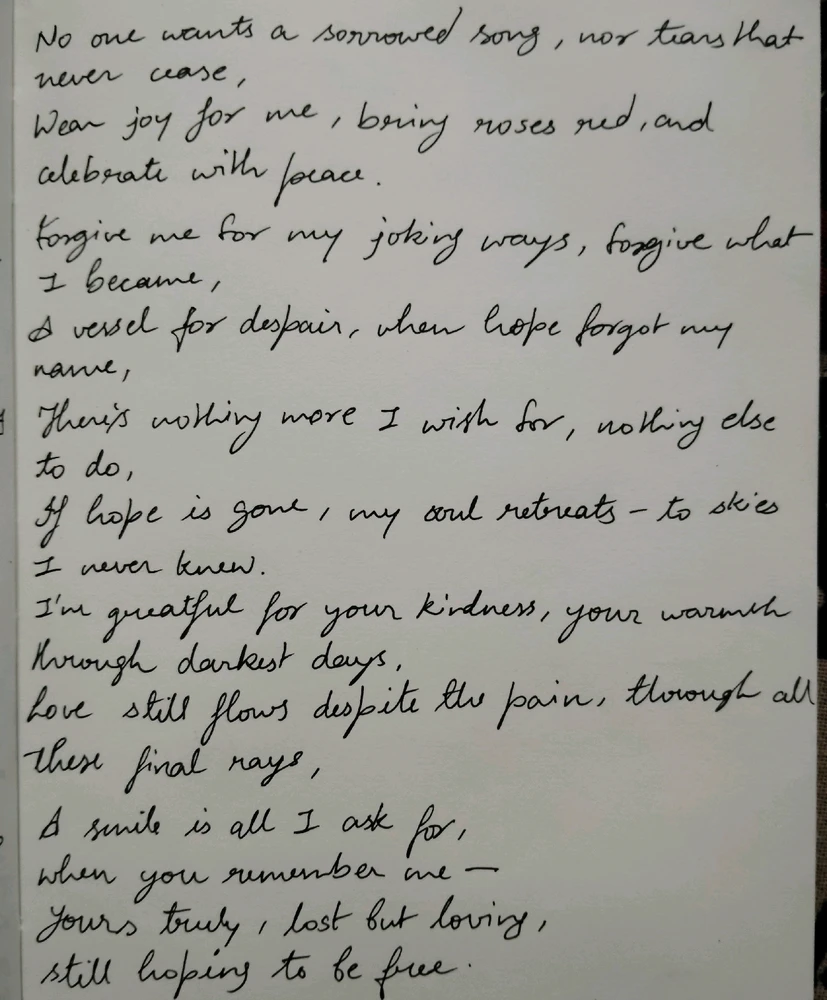 No one wants a sorrowed song, nor tears that
never cease,
Wear joy for me, bring roses red, and
celebrate with peace.
Forgive me for my joking ways, forgive what
I became,
A vessel for despair, when hope forgot my
name,
There's nothing more I wish for, nothing else
to do,
If hope is gone, my soul retreats - to skies
I never knew.
I'm greatful for your kindness, your warmth
through darkest days,
Love still flows despite the pain, through all
these final rays,
A smile is all I ask for,
when you remember me —
Yours truly, lost but loving,
still hoping to be free.